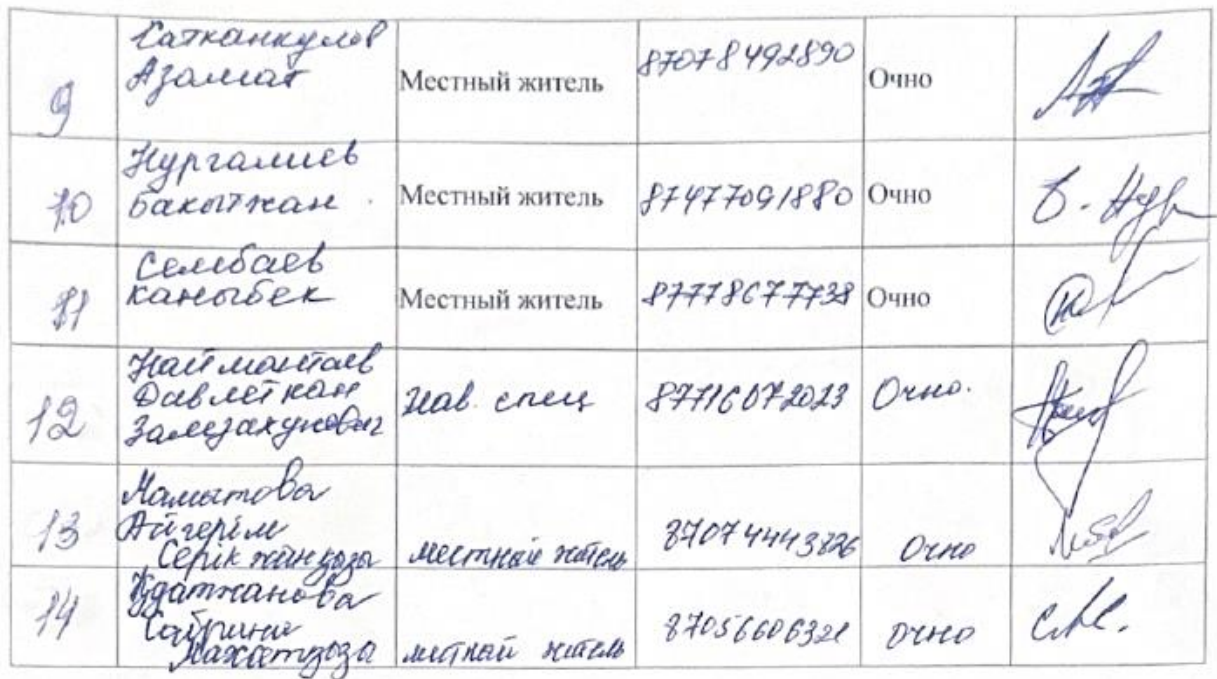 9
Саткынкулов
Азамат
Местный житель
87078492890
Очно
10
Нургалиев
Бакытжан
Местный житель
87477091880
Очно
Б. Нур
11
Сембаев
Каныбек
Местный житель
87778677738
Очно
12
Наймантаев
Давлеткан
спец
87716072023
Очно.
13
Мамытова
Айгерім
Серікжанқызы
местный житель
87074443826
очно
14
Сабрина
Махатқызы
местный житель
87056606321
очно